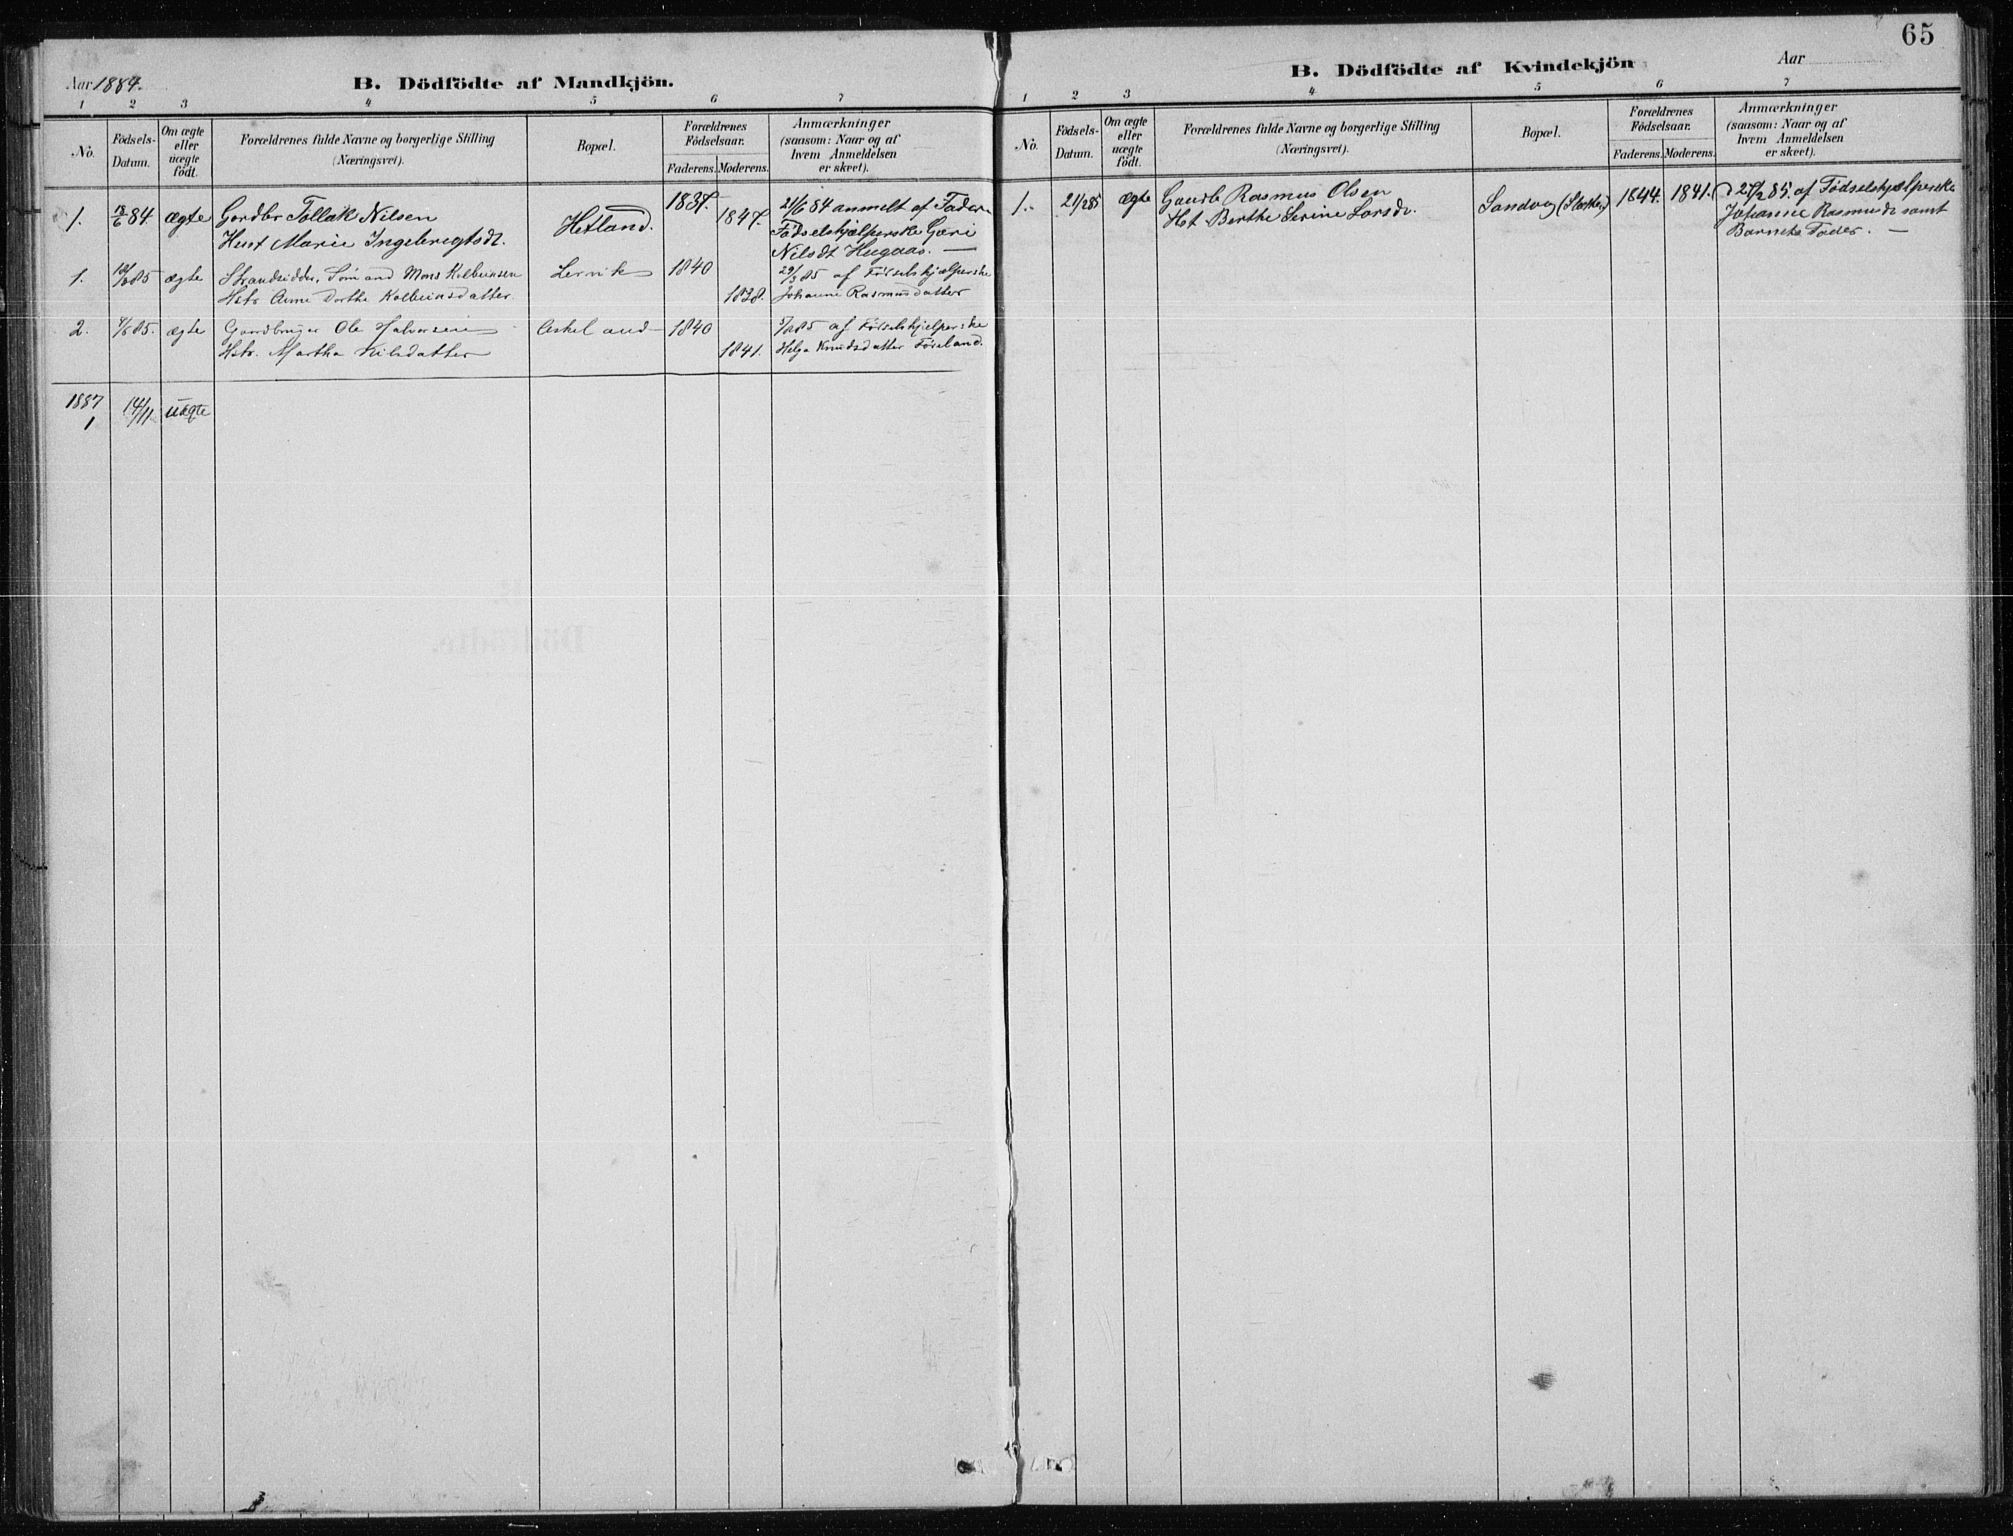 65
Aar 1884.
B. Dödfödte af Mandkjön.
1 2 3 4 5 6 7
No.
Födsels-
Datum.
Om ægte
eller
uægte
födt.
Forældrenes fulde Navne og borgerlige Stilling
(Næringsvei).
Bopæl.
Forældrenes
Födselsaar.
Faderens. Moderens.
Anmærkninger
(saasom: Naar og af
hvem Anmeldelsen
er skeet).
1. 18/6 84 ægte Gardbr Tollak Nilsen Hetland. 1837. 1847. 21/6 84 anmelt af Fader
Hust Marie Ingebregtsdt. Fødselshjælperske Gæri
Nilsdt Hegaas. —
1. ægte Strandsidder, Sømand Mons Kolbeinsen Lervik 1840 29/3 85 af Fødselshjælperske
Hstr. Anne Dorthe Kolbeinsdatter 1838. Johanne Rasmusdatter
2. ægte Gardbruger Ole Halvorsen Askeland 1840 5/8 85 af Fødselshjelperske
Hstr. Martha Nilsdatter 1841. Helga Knudsdatter Føreland.
1887
1 14/11 uægte
B. Dödfödte af Kvindekjön
Aar
1 2 3 4 5 6 7
No.
Födsels-
Datum.
Om ægte
eller
uægte
födt.
Forældrenes fulde Navne og borgerlige Stilling
(Næringsvei).
Bopæl.
Forældrenes
Födselsaar.
Faderens. Moderens.
Anmærkninger
(saasom: Naar og af
hvem Anmeldelsen
er skeet).
1. 21/2 85 ægte Gaardb Rasmus Olsen Sandvig 1844. 1841. 27/2 85. af Fødselshjælperske
Hst Berthe Serine Larsdr. Johanne Rasmusdr samt
Barnets Fader. —